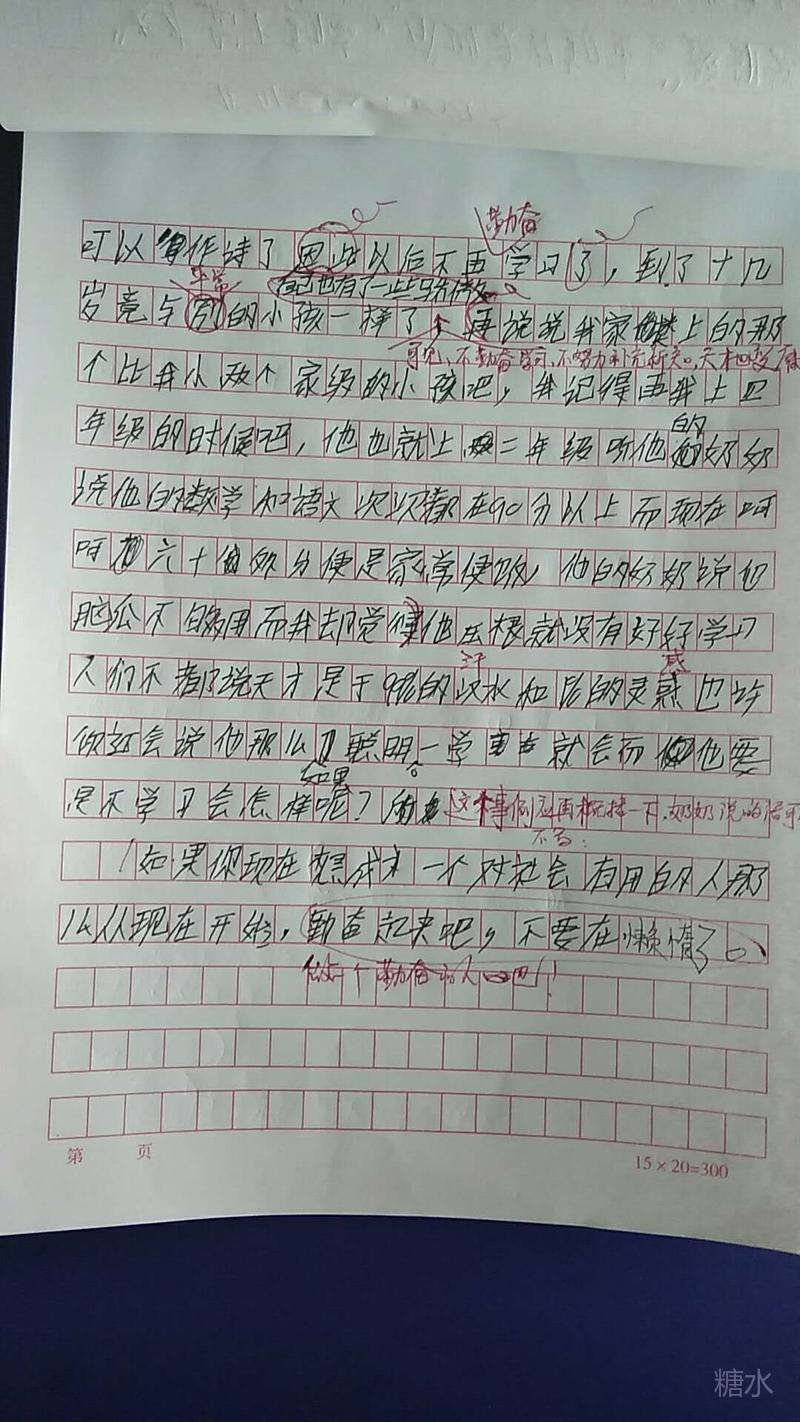 勤奋
可以作诗了因此以后不再学习了，到了十几
平常
自己也有了一些骄傲
岁竟与别的小孩一样了，再说说我家楼上的那
可见，不勤奋学习，不努力补充新知，天才也变
个比我小两个家级的小孩吧，我记得再我上四
的
年级的时候吧，他也就上二年级听他奶奶
说他的数学和语文次次都在90分以上而现在呵
呵六十分便是家常便饭，他的奶奶说他
脑瓜不够用而我却觉得他压根就没有好好学习
汗 感
人们不都说天才是于的汉水和的灵惑也许
你还会说他那么聪明一学就会而他要
如果
是不学习会怎样呢？这事例应再概括一下，奶奶说的话可
不写：
如果你现在想成才一个对社会有用的人那
么从现在开始，勤奋起来吧，不要在懒惰了。
做一个勤奋的人吧！
第 页
15×20=300
糖水